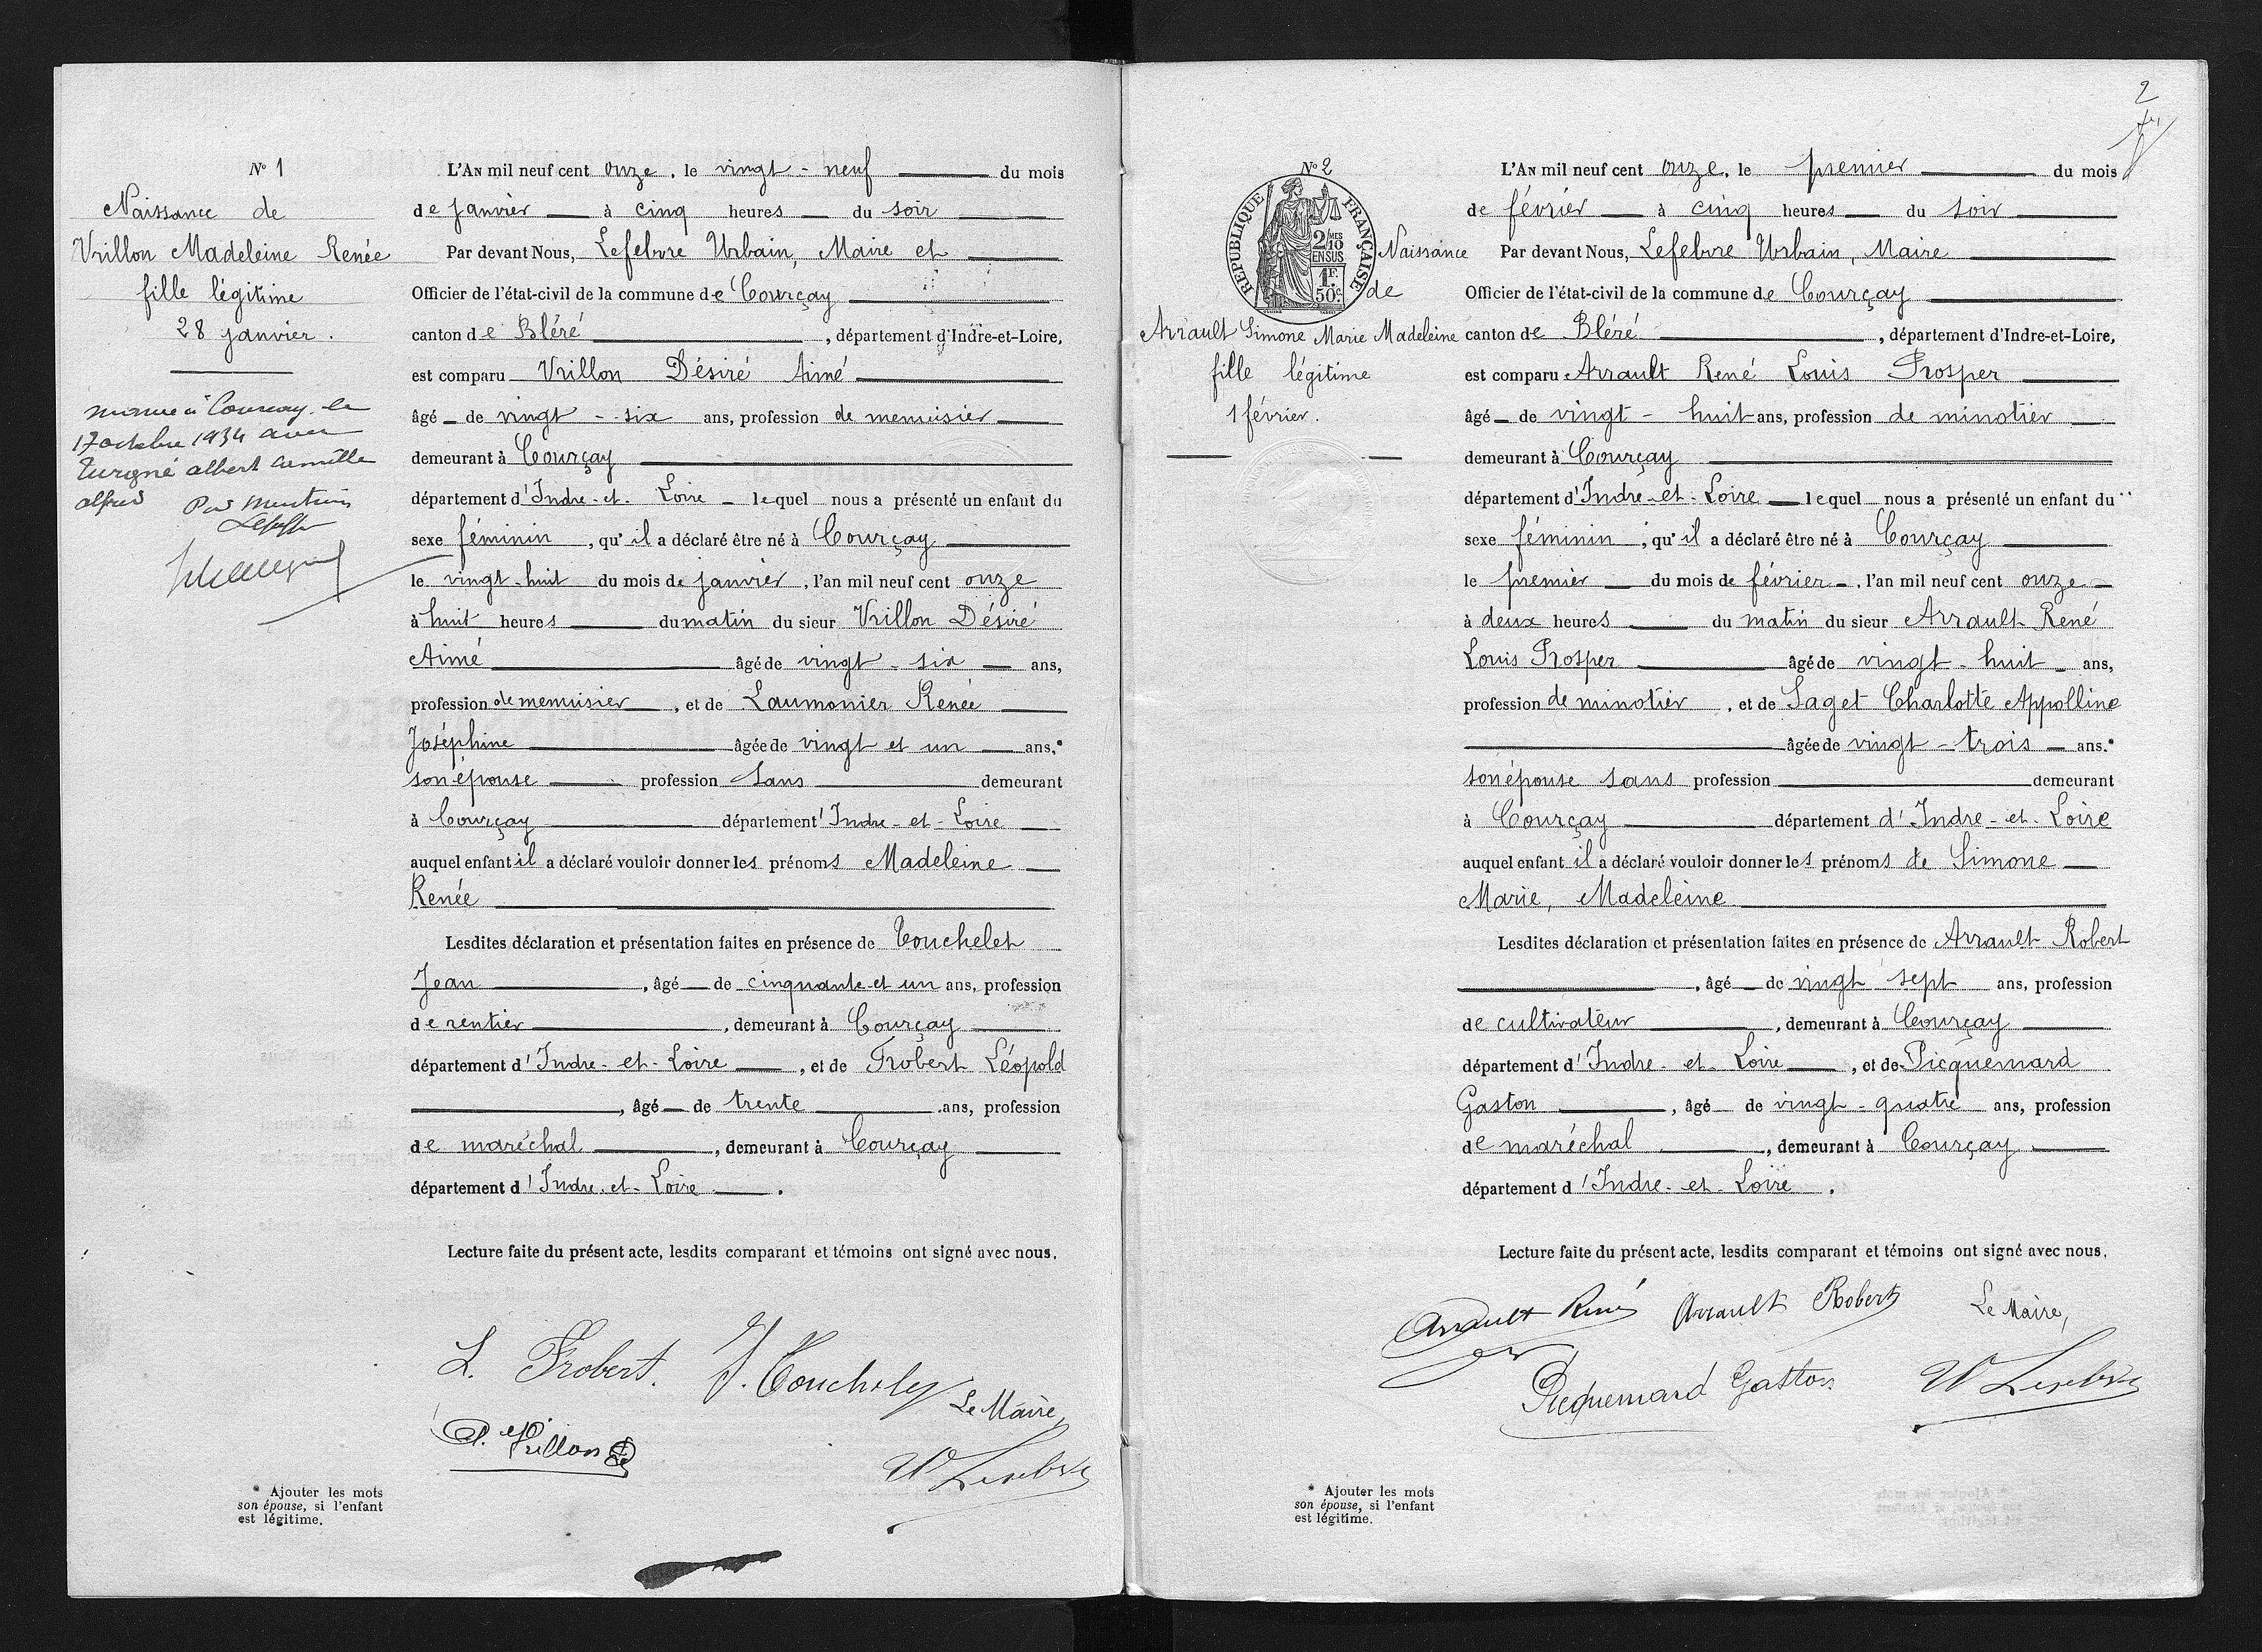 N° 1
Naissance de
Vrillon Madeleine Renée
fille légitime
28 janvier.
mariée à Courçay le
17 octobre 1934 avec
Turgné albert camille
alfred Pour mention
L'AN mil neuf cent onze, le vingt-neuf du mois
de janvier à cinq heures du soir
Par devant Nous, Lefebvre Urbain, Maire et
Officier de l'état-civil de la commune de Courçay
canton de Bléré, département d'Indre-et-Loire,
est comparu Vrillon Désiré Aimé
âgé de vingt-six ans, profession de menuisier
demeurant à Courçay
département d'Indre-et-Loire lequel nous a présenté un enfant du
sexe féminin, qu'il a déclaré être né à Courçay
le vingt-huit du mois de janvier, l'an mil neuf cent onze
à huit heures du matin du sieur Vrillon Désiré
Aimé âgé de vingt-six ans,
profession de menuisier, et de Laumonier Renée
Joséphine âgée de vingt et un ans,*
son épouse profession sans demeurant
à Courçay département d'Indre-et-Loire
auquel enfant il a déclaré vouloir donner les prénoms Madeleine
Renée
Lesdites déclaration et présentation faites en présence de Touchelet
Jean, âgé de cinquante et un ans, profession
de rentier, demeurant à Courçay
département d'Indre-et-Loire, et de Frobert Léopold
, âgé de trente ans, profession
de maréchal, demeurant à Courçay
département d'Indre-et-Loire.
Lecture faite du présent acte, lesdits comparant et témoins ont signé avec nous.
L. Frobert. J. Touchelet
Le Maire,
D. Vrillon
U Lefebvre
* Ajouter les mots
son épouse, si l'enfant
est légitime.
2
N° 2
RÉPUBLIQUE FRANÇAISE
2 MES
10
EN SUS
1F.
50c.
Naissance
de
Arrault Simone Marie Madeleine
fille légitime
1 février.
L'AN mil neuf cent onze, le premier du mois
de février à cinq heures du soir
Par devant Nous, Lefebvre Urbain, Maire
Officier de l'état-civil de la commune de Courçay
canton de Bléré, département d'Indre-et-Loire,
est comparu Arrault René Louis Prosper
âgé de vingt-huit ans, profession de minotier
demeurant à Courçay
département d'Indre-et-Loire lequel nous a présenté un enfant du
sexe féminin, qu'il a déclaré être né à Courçay
le premier du mois de février, l'an mil neuf cent onze
à deux heures du matin du sieur Arrault René
Louis Prosper âgé de vingt-huit ans,
profession de minotier, et de Saget Charlotte Appolline
âgée de vingt-trois ans.*
son épouse sans profession demeurant
à Courçay département d'Indre-et-Loire
auquel enfant il a déclaré vouloir donner les prénoms de Simone
Marie, Madeleine
Lesdites déclaration et présentation faites en présence de Arrault Robert
, âgé de vingt sept ans, profession
de cultivateur, demeurant à Courçay
département d'Indre-et-Loire, et de Picquemard
Gaston, âgé de vingt-quatre ans, profession
de maréchal, demeurant à Courçay
département d'Indre-et-Loire.
Lecture faite du présent acte, lesdits comparant et témoins ont signé avec nous.
Arrault René Arrault Robert Le Maire,
Picquemard Gaston U Lefebvre
* Ajouter les mots
son épouse, si l'enfant
est légitime.